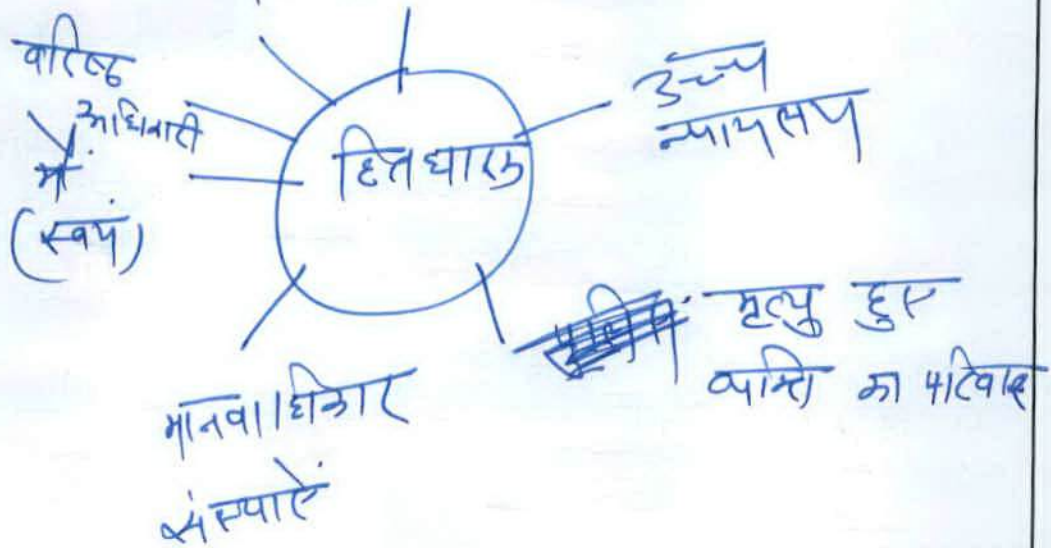 वरिष्ठ
अधिकारी
मैं
(स्वयं)
हितधारक
उच्च
न्यायालय
मृत्यु हुए
व्यक्ति का परिवार
मानवाधिकार
संस्थाऐं